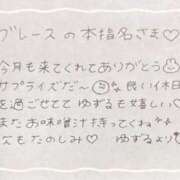 ブレースの本指名さま♡
今月も来てくれてありがとう
サプライズだ〜 な良い休日
を過ごせてて ゆずるも嬉しい♡
また お味噌汁持ってくね
なもたのしみ♡ ゆずるより